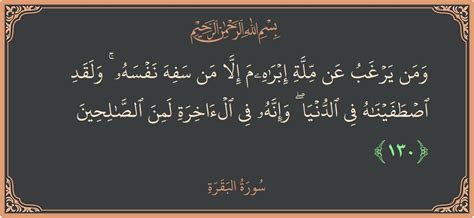 بِسْمِ اللَّهِ الرَّحْمَٰنِ الرَّحِيمِ
وَمَن يَرْغَبُ عَن مِّلَّةِ إِبْرَٰهِۦمَ إِلَّا مَن سَفِهَ نَفْسَهُۥ ۚ وَلَقَدِ
ٱصْطَفَيْنَٰهُ فِى ٱلدُّنْيَا ۖ وَإِنَّهُۥ فِى ٱلْءَاخِرَةِ لَمِنَ ٱلصَّٰلِحِينَ
﴿١٣٠﴾
سُورَةُ البَقَرَةِ